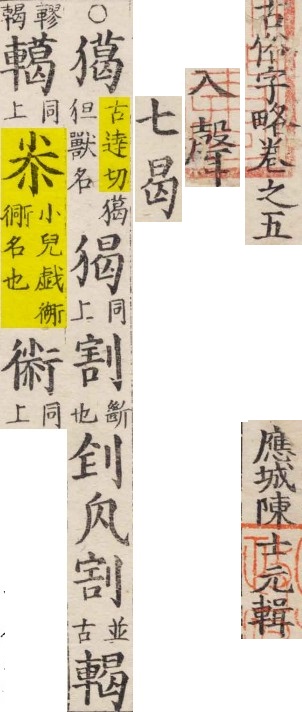 古俗字略卷之五
應城陳士元輯
入聲
七曷
○獦古達切獦狚獸名猲同上割斷也割並古輵
轇輵轕同上小兒戯名也同上